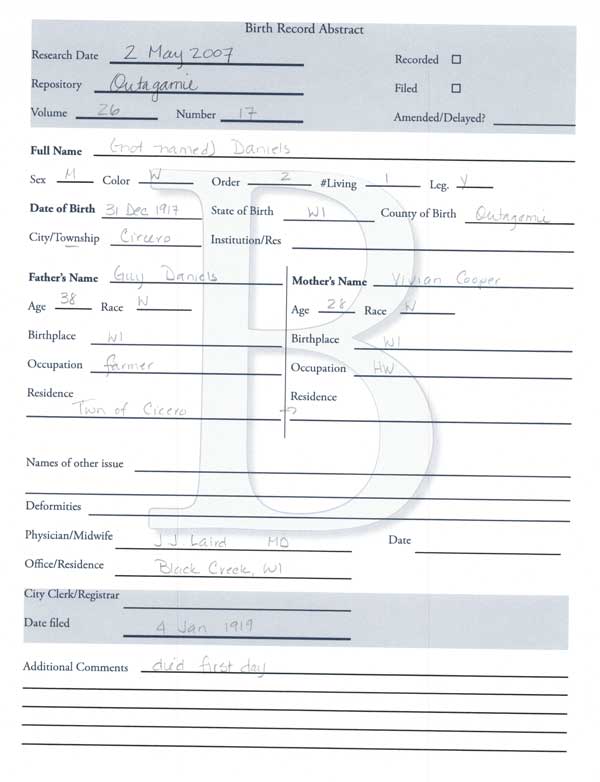 Birth Record Abstract
Research Date 2 May 2007 Recorded ☐
Repository Outagamie Filed ☐
Volume 26 Number 17 Amended/Delayed?
Full Name (not named) Daniels
Sex M Color W Order 2 #Living 1 Leg. Y
Date of Birth 31 Dec 1917 State of Birth WI County of Birth Outagamie
City/Township Cicero Institution/Res
Father's Name Guy Daniels Mother's Name Vivian Cooper
Age 38 Race W Age 28 Race W
Birthplace WI Birthplace WI
Occupation farmer Occupation HW
Residence Residence
Twn of Cicero
Names of other issue
Deformities
Physician/Midwife J.J. Laird MD Date
Office/Residence Black Creek, WI
City Clerk/Registrar
Date filed 4 Jan 1919
Additional Comments died first day
B